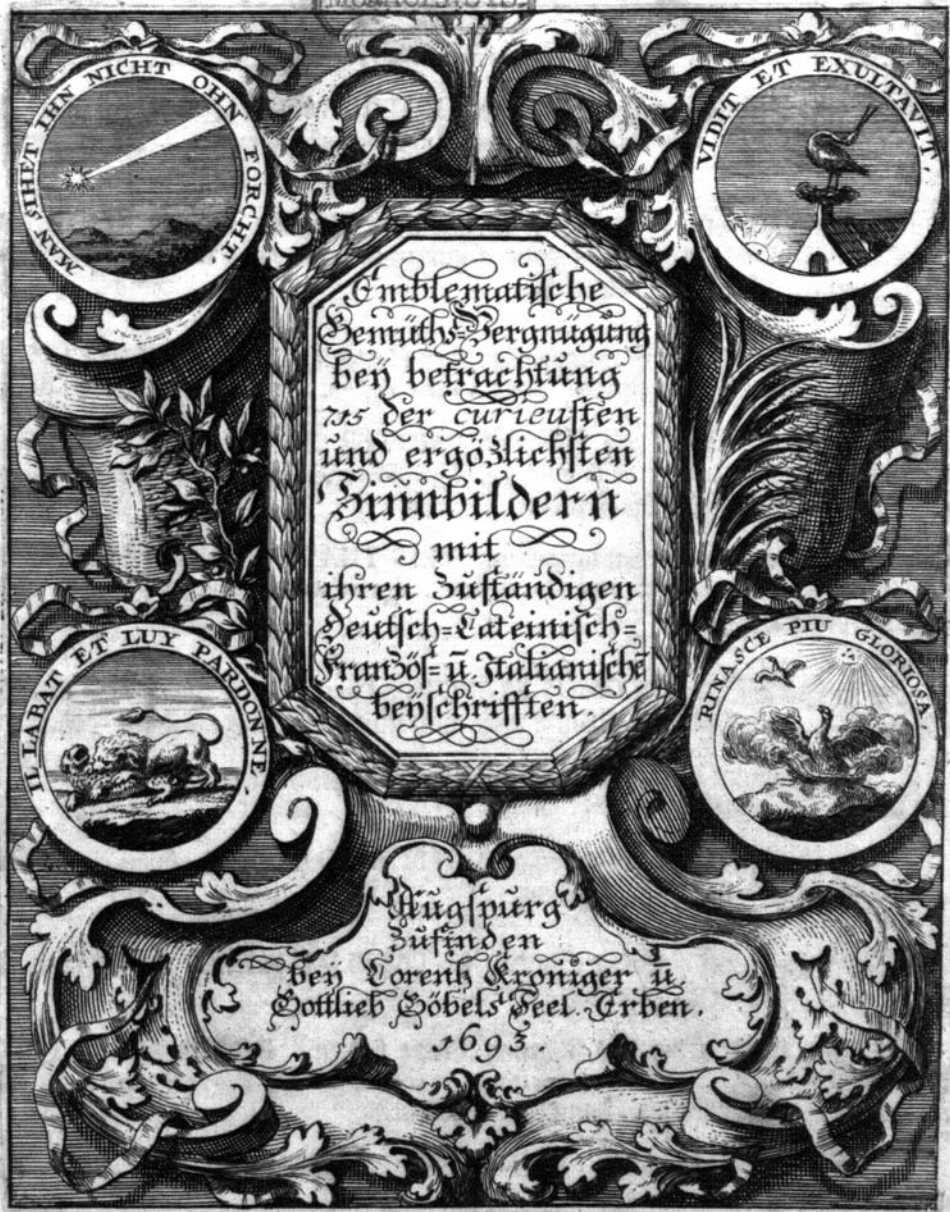 MAN SIHET IHN NICHT OHN FORCHT.
VIDIT ET EXULTAVIT.
Emblematische
Gemüths-Vergnügung
beÿ betrachtung
715 der curieusten
und ergözlichsten
Sinnbildern
mit
ihren zuständigen
Deutsch=Lateinisch=
Französ= ū. Italianische
beÿschrifften.
IL L'ABAT ET LUY PARDONNE
RINASCE PIU GLORIOSA.
Augspurg
zufinden
beÿ Lorentz Kroniger ū.
Gottlieb Göbels Seel. Erben.
1693.